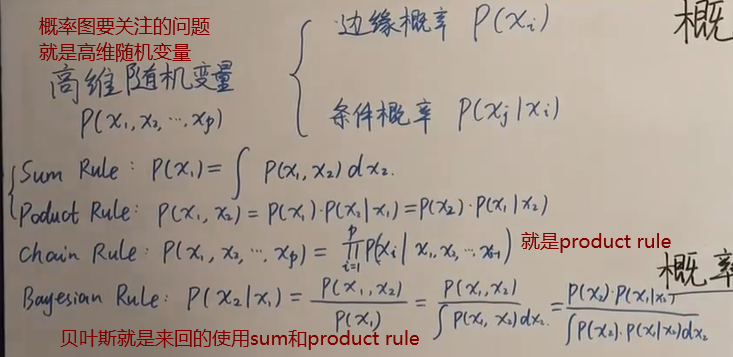 概率图要关注的问题
就是高维随机变量
高维随机变量
P(x₁, x₂, ⋯, xₚ)
边缘概率 P(xᵢ)
条件概率 P(xⱼ|xᵢ)
概
Sum Rule: P(x₁) = ∫ P(x₁, x₂) dx₂.
Poduct Rule: P(x₁, x₂) = P(x₁)·P(x₂|x₁) = P(x₂)·P(x₁|x₂)
Chain Rule: P(x₁, x₂, ⋯, xₚ) = ∏ᵢ₌₁ᵖ P(xᵢ | x₁, x₂, ⋯ xᵢ₋₁) 就是product rule
概率
Bayesian Rule: P(x₂|x₁) = P(x₁, x₂) / P(x₁) = P(x₁, x₂) / ∫ P(x₁, x₂) dx₂. = P(x₂)·P(x₁|x₂) / ∫ P(x₂)·P(x₁|x₂) dx₂
贝叶斯就是来回的使用sum和product rule